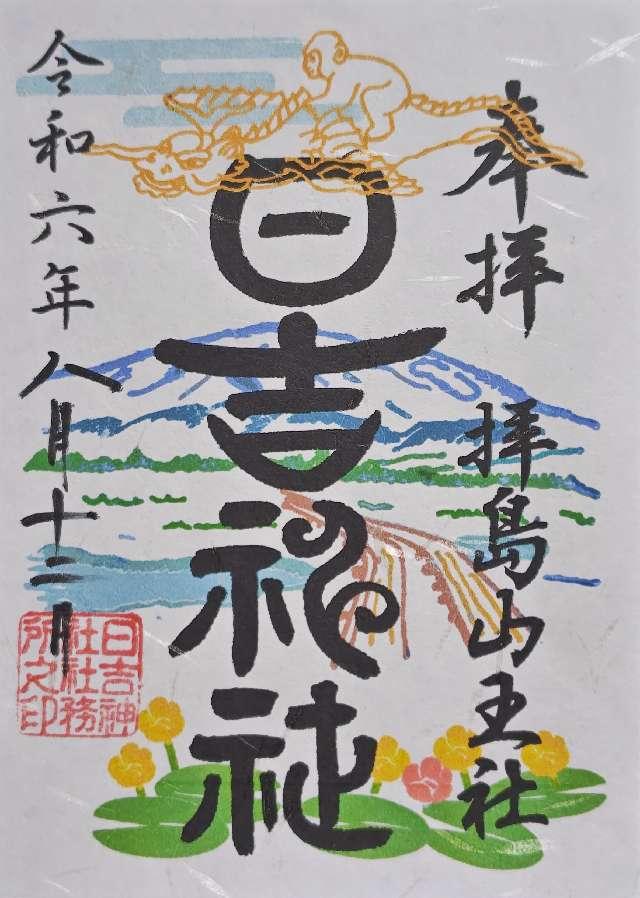 奉拝
拝島山王社
日吉神社
令和六年八月十二日
日吉神
社社務
所之印